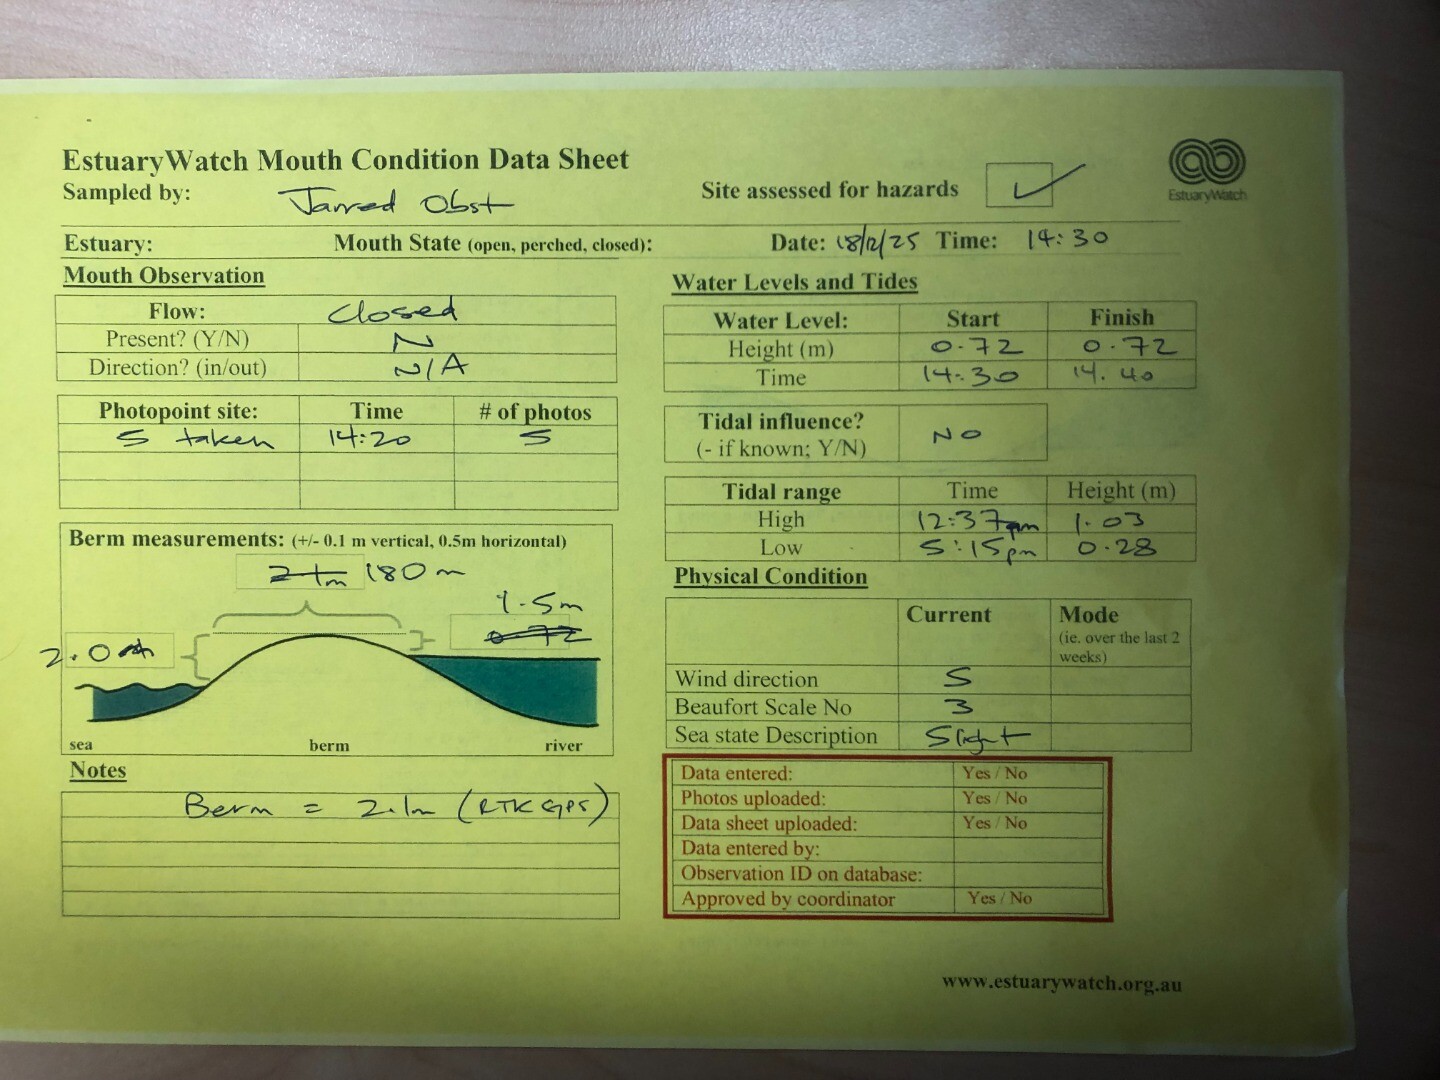 EstuaryWatch Mouth Condition Data Sheet
Sampled by: Jarred Obst
Site assessed for hazards ✓
EstuaryWatch
Estuary: Mouth State (open, perched, closed): Date: 18/12/25 Time: 14:30
Mouth Observation
Flow: Closed
Present? (Y/N) N
Direction? (in/out) N/A
Photopoint site: Time # of photos
5 taken 14:20 5
Berm measurements: (+/- 0.1 m vertical, 0.5m horizontal)
2.1m 180m
1.5m
0.72
2.0m
sea berm river
Notes
Berm = 2.1m (RTK GPS)
Water Levels and Tides
Water Level: Start Finish
Height (m) 0.72 0.72
Time 14:30 14.40
Tidal influence? NO
(- if known; Y/N)
Tidal range Time Height (m)
High 12:37pm 1.03
Low 5:15pm 0.28
Physical Condition
Current Mode
(ie. over the last 2
weeks)
Wind direction S
Beaufort Scale No 3
Sea state Description Slight
Data entered: Yes / No
Photos uploaded: Yes / No
Data sheet uploaded: Yes / No
Data entered by:
Observation ID on database:
Approved by coordinator Yes / No
www.estuarywatch.org.au